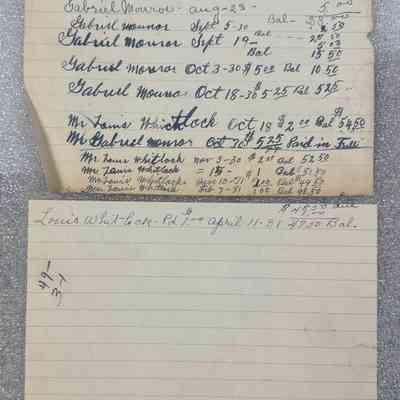 Gabriel Monroe - aug-23 - 5 00
Gabriel monroe Sept 5-30 Bal - 2 50
Gabriel Monroe Sept 19 - Bal - - - - 25 50
Bal 15 50
Gabriel Monroe Oct 3-30 $5 00 Bal 10 50
Gabriel Monroe Oct 18-30 $5 25 Bal 5 25
Mr Louis Whitlock Oct 18 $2 00 Bal $54 50
Mr Gabriel monroe Oct 30 $5 25 Paid in Full
Mr Louis Whitlock nov 3-30 $2.00 Bal 52.50
Mr Louis Whitlock = 15 - $1 Bal 51.50
Mr Louis Whitlock 2.00 Bal 49.50
Mr Louis Whitlock Feb 7-31 1.00 Bal 48.50
Louis Whitlock - Pd $1.00 April 11-31 47.50 Bal.
49-
3-1